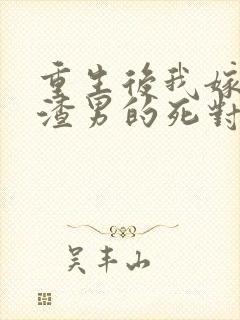 重生後我嫁
渣男的死對
吴丰山